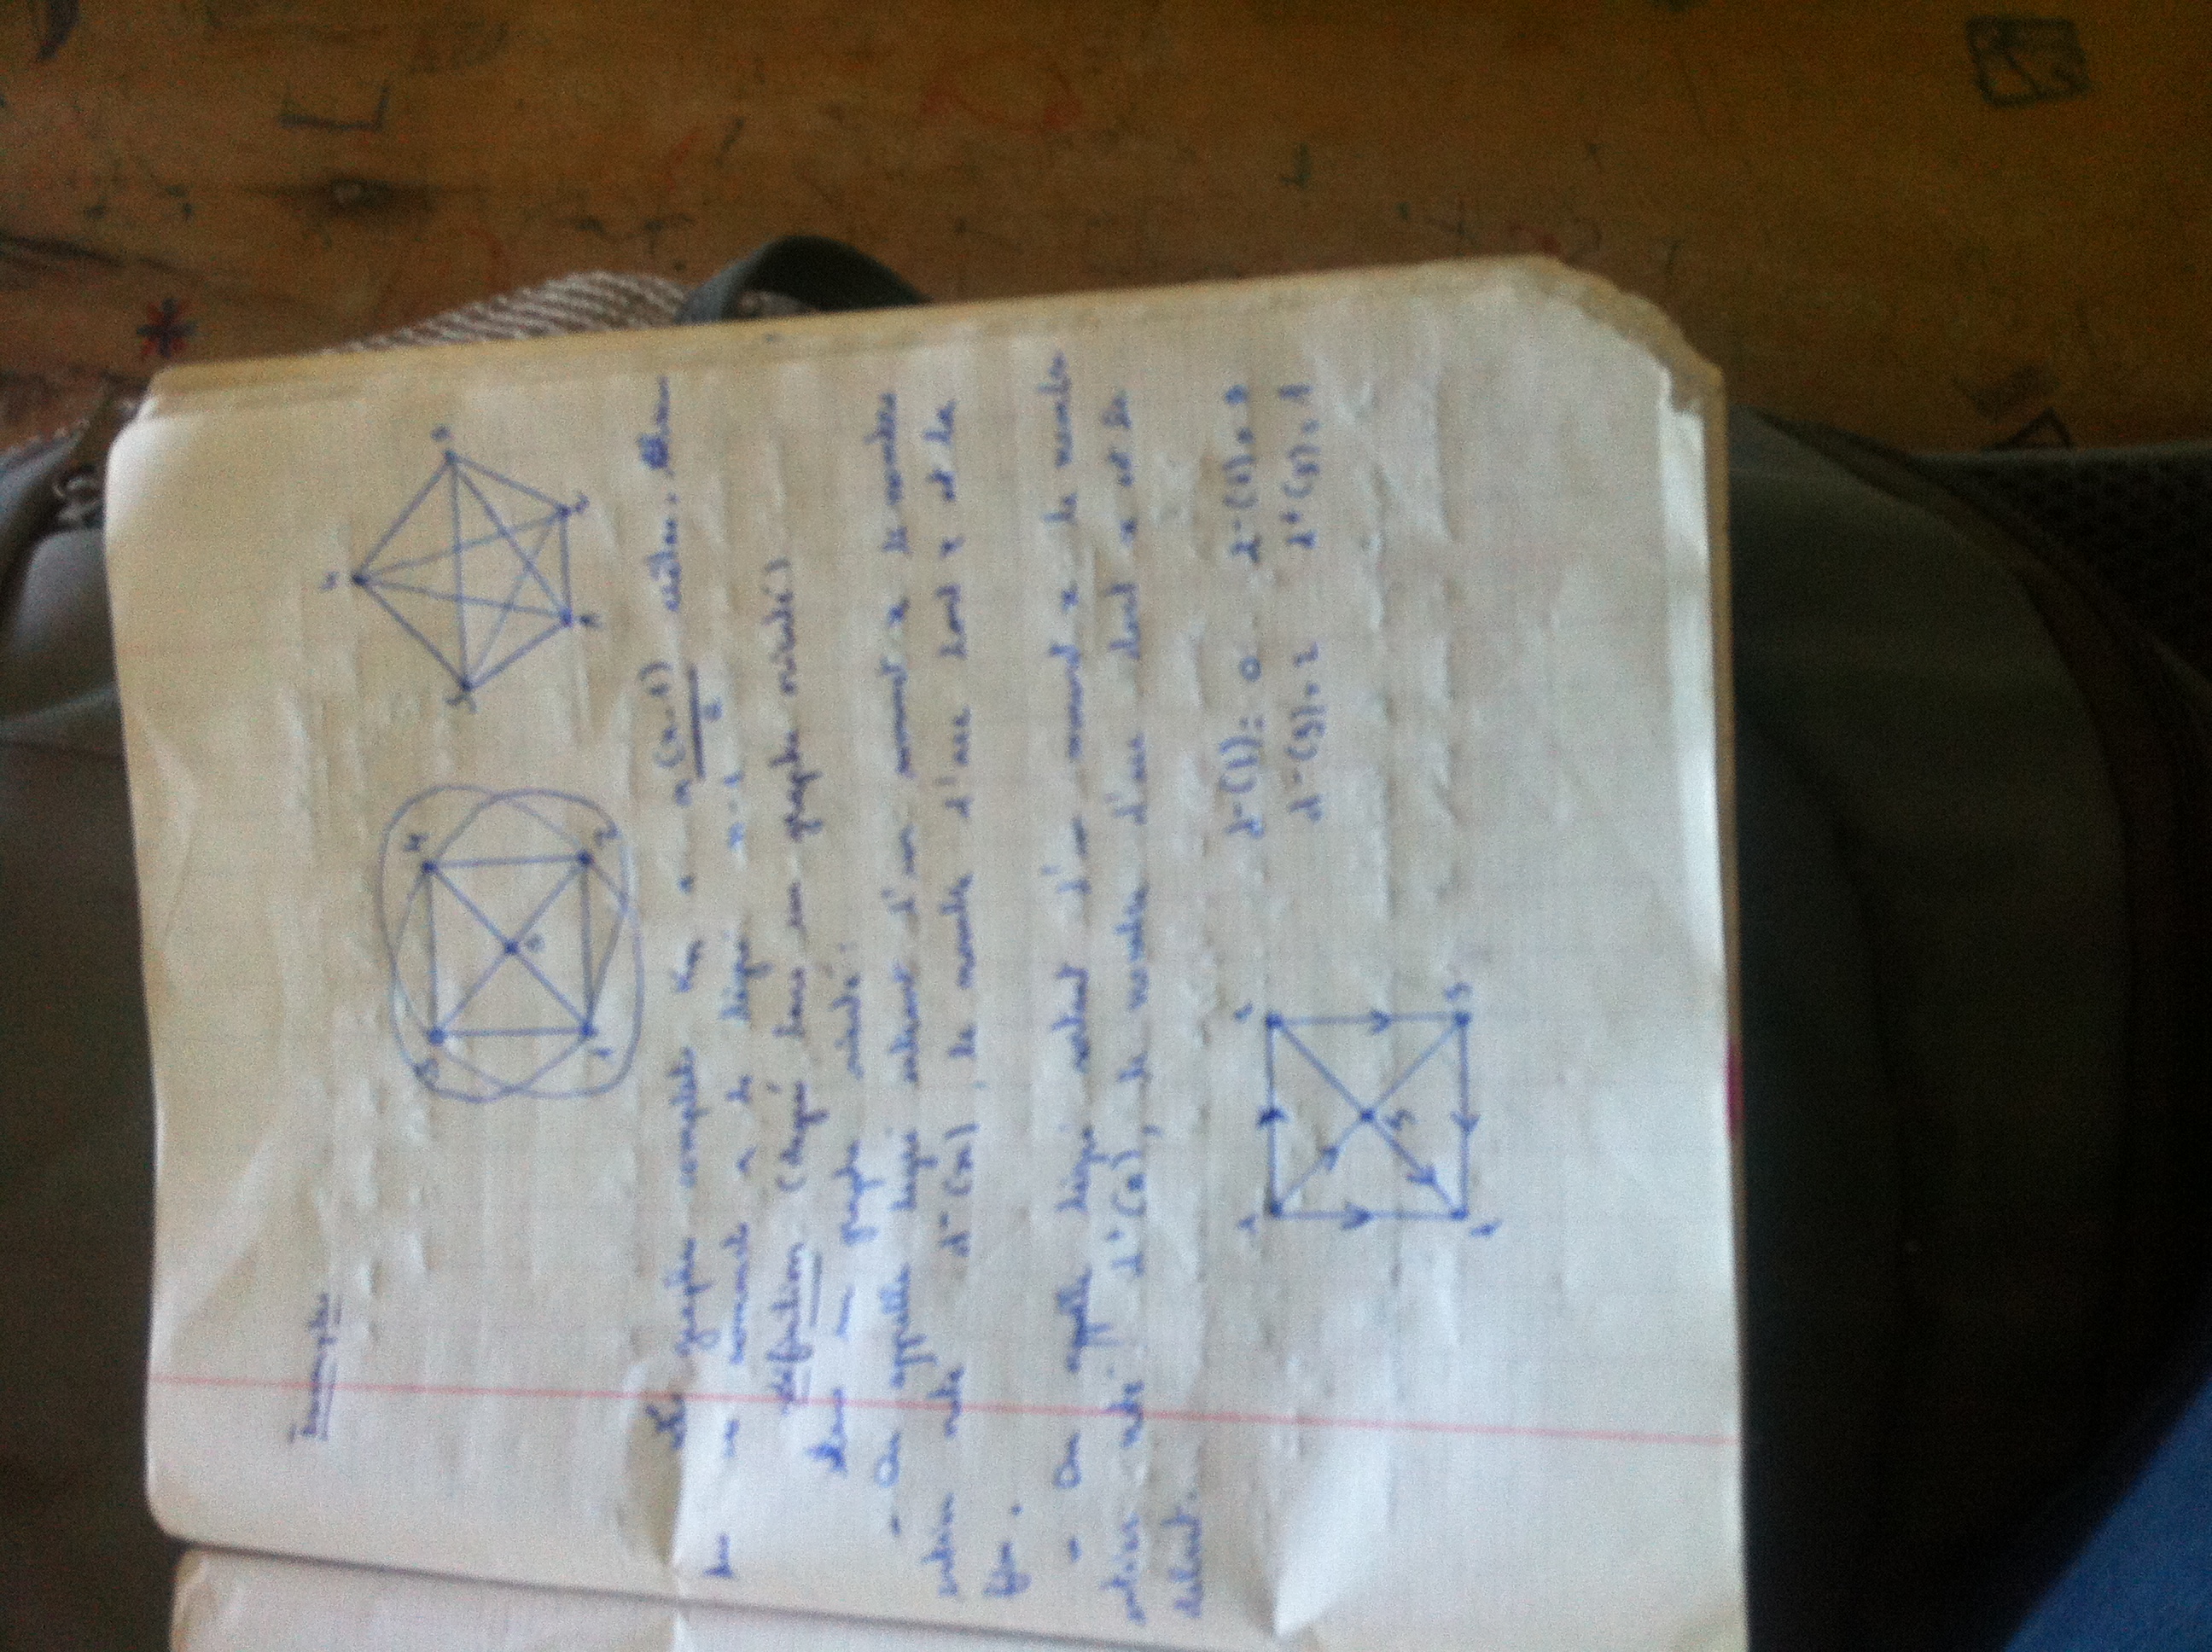 Exemples
3 4
1 2
4
1 2
Le graphe complet Kn a n(n-1)/2 arêtes. Chacun
de ses sommets a le dégré n-1
définition (degré dans un graphe orienté)
Dans un graphe orienté :
- On appelle degré entrant d'un sommet x le nombre
entier noté d-(x), le nombre d'arc dont x est la
fin.
- On appelle dégré sortant d'un sommet x le nombre
entier noté d+(x), le nombre d'arc dont x est le
début.
d-(1) = 0
d-(3) = 2 d+(3) = 1
5
3